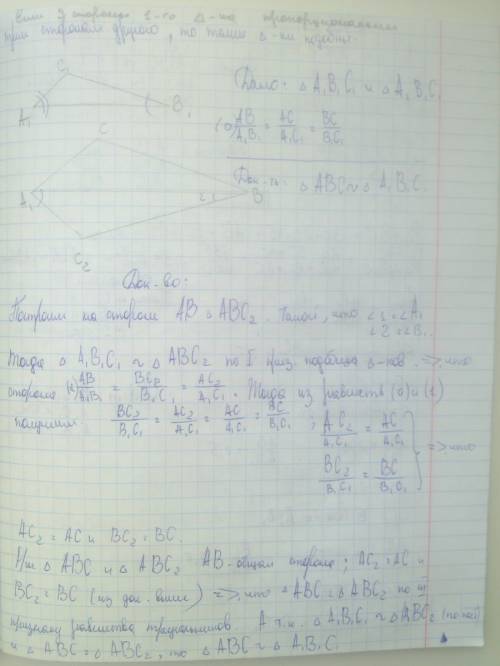 Если 3 стороны 1-го Δ-ка пропорциональны
трем сторонам другого, то такие Δ-ки подобны.
C₁
Дано: Δ A₁B₁C₁ и Δ A₁B₁C₁
A₁
B₁
(0) AB/A₁B₁ = AC/A₁C₁ = BC/B₁C₁
C
Док-ть: Δ ABC ~ Δ A₁B₁C₁
A₁
B
C₂
Док-во:
Построим на стороне AB Δ ABC₂. Такой, что ∠1=∠A₁
∠2=∠B₁.
Тогда Δ A₁B₁C₁ ~ Δ ABC₂ по I приз. подобия Δ-ков. => что
стороны (1) AB/A₁B₁ = BC₂/B₁C₁ = AC₂/A₁C₁. Тогда из равенств (0) и (1)
получим BC₂/B₁C₁ = AC₂/A₁C₁ = AC/A₁C₁ = BC/B₁C₁ ; AC₂/A₁C₁ = AC/A₁C₁
=> что
BC₂/B₁C₁ = BC/B₁C₁
AC₂ = AC и BC₂ = BC.
Δ ABC и Δ ABC₂ AB-общая сторона; AC₂=AC и
BC₂ = BC (из док. выше) => что Δ ABC = Δ ABC₂ по III
признаку равенства треугольников. А т.к. Δ A₁B₁C₁ ~ Δ ABC₂
и Δ ABC = Δ ABC₂, то Δ ABC ~ Δ A₁B₁C₁